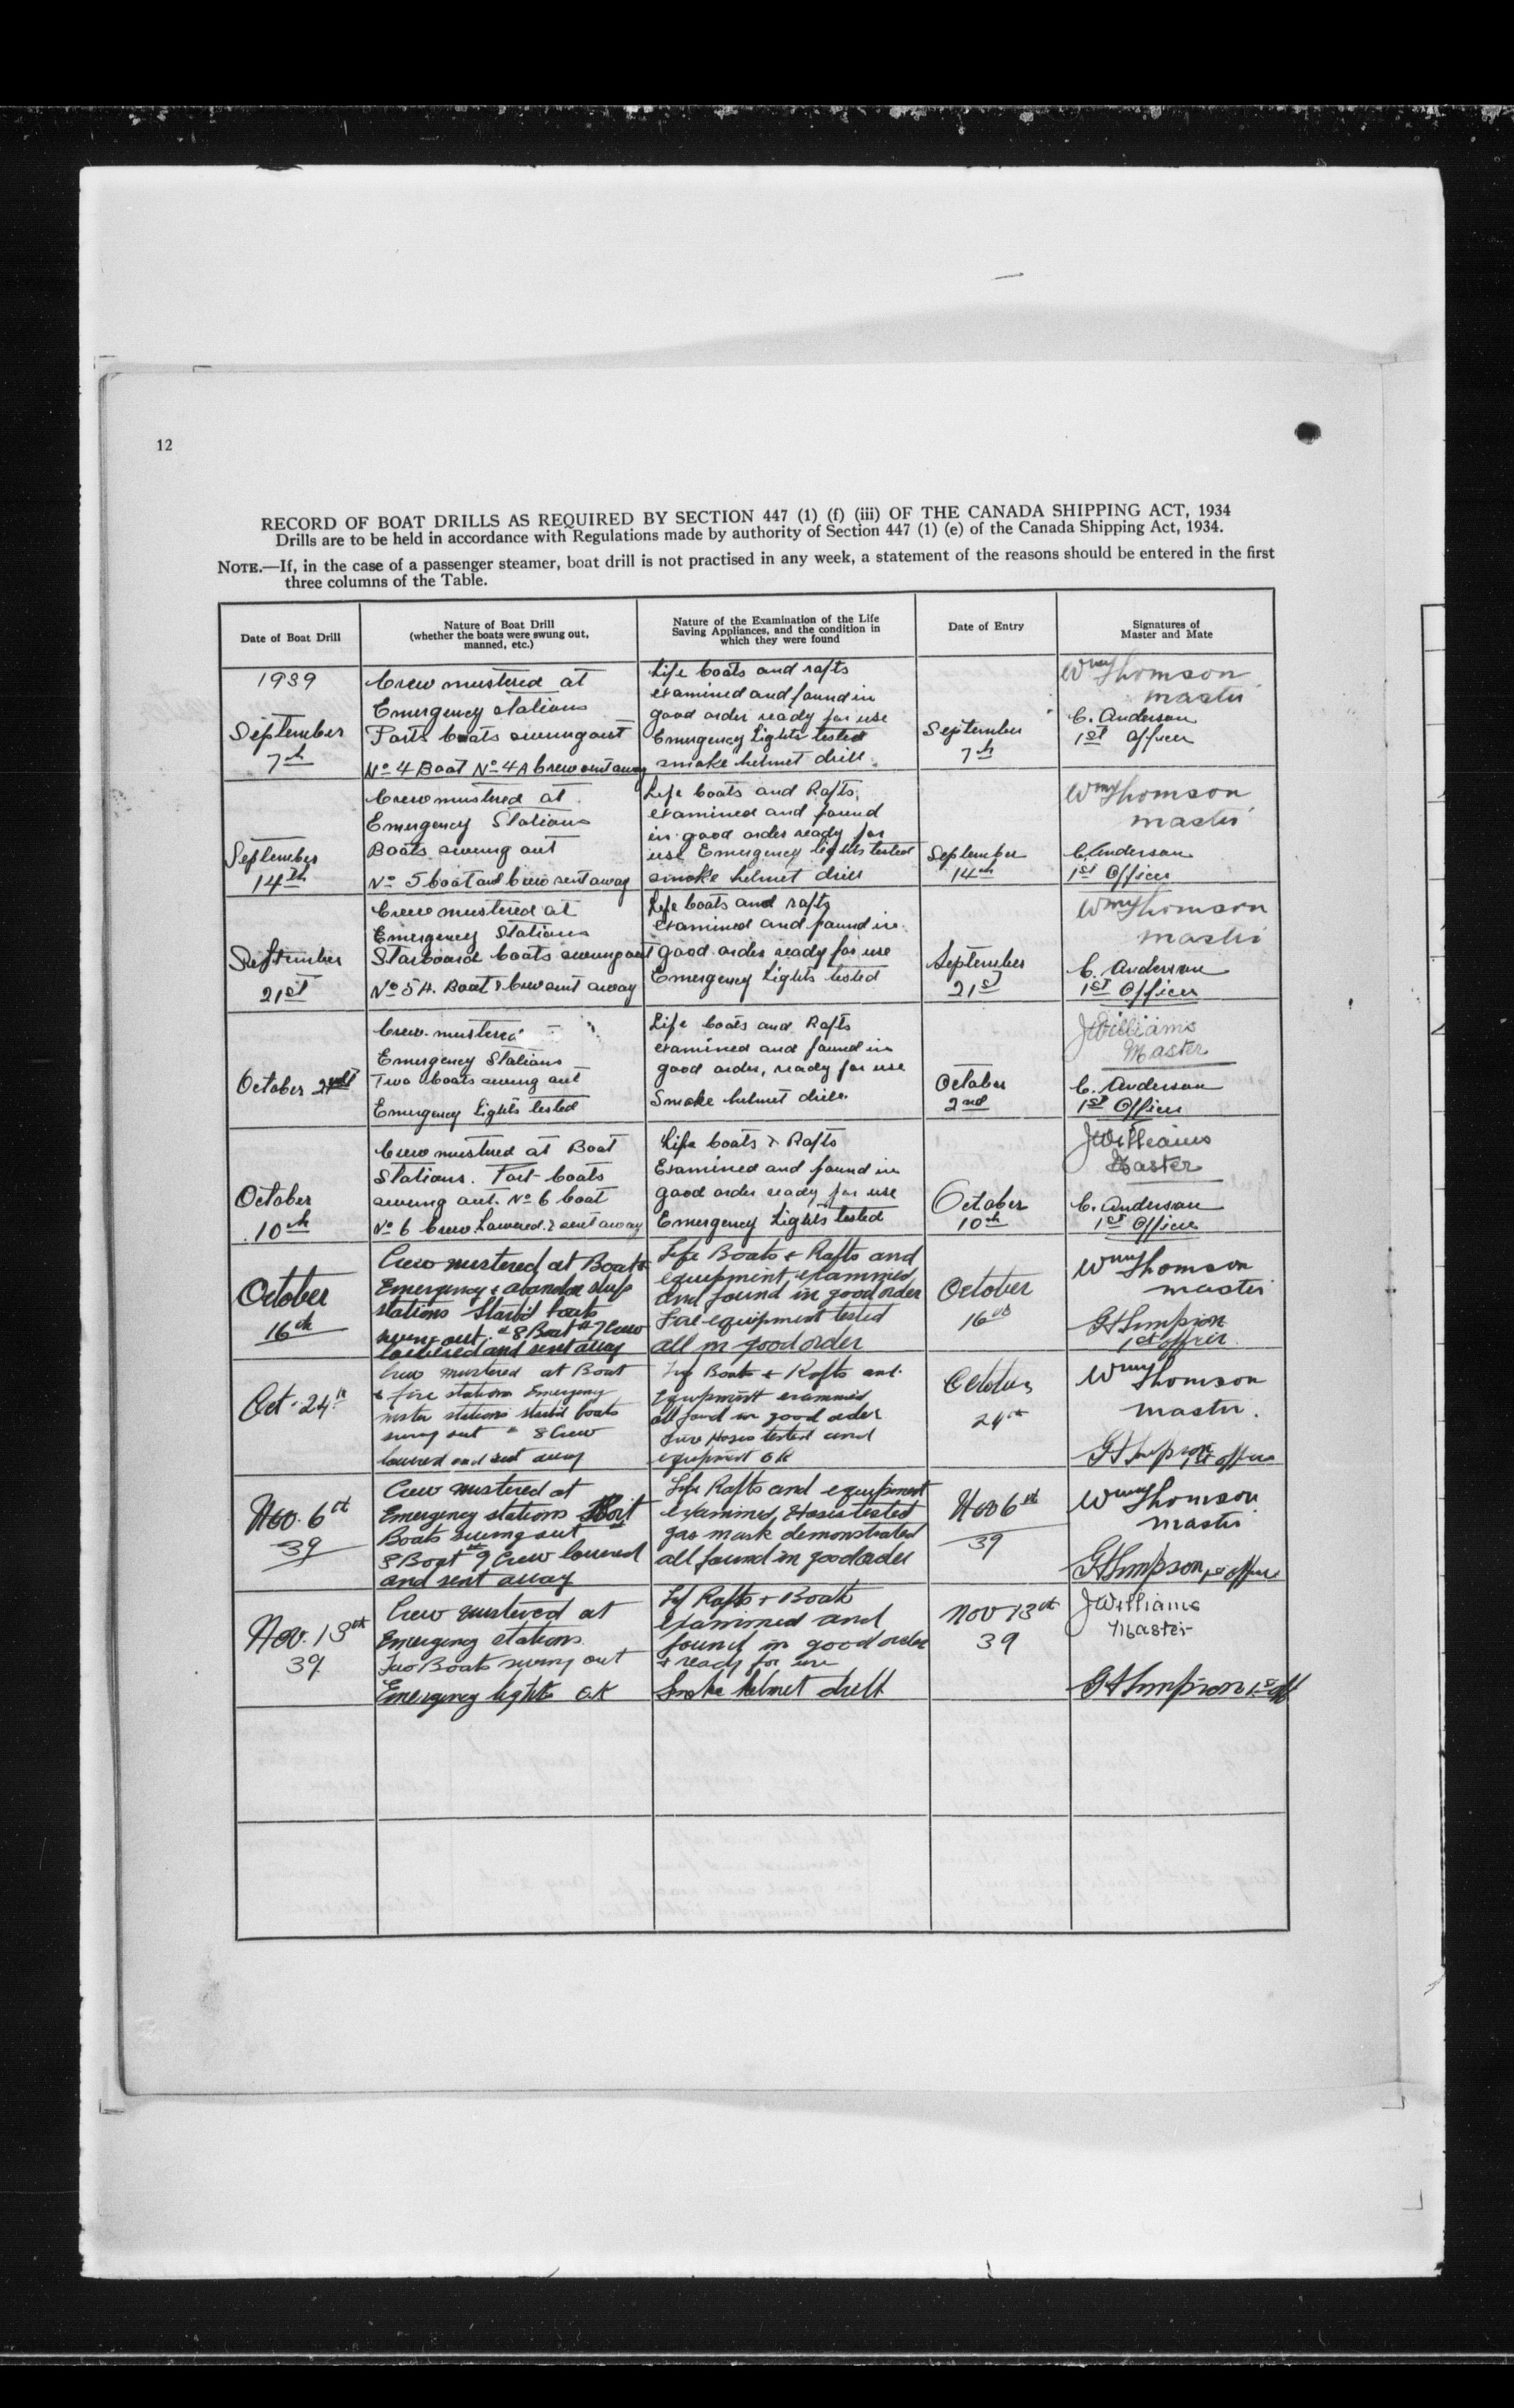 12
RECORD OF BOAT DRILLS AS REQUIRED BY SECTION 447 (1) (f) (iii) OF THE CANADA SHIPPING ACT, 1934
Drills are to be held in accordance with Regulations made by authority of Section 447 (1) (e) of the Canada Shipping Act, 1934.
NOTE.—If, in the case of a passenger steamer, boat drill is not practised in any week, a statement of the reasons should be entered in the first
three columns of the Table.
Date of Boat Drill
Nature of Boat Drill
(whether the boats were swung out,
manned, etc.)
Nature of the Examination of the Life
Saving Appliances, and the condition in
which they were found
Date of Entry
Signatures of
Master and Mate
1939
September
7th
Crew mustered at
Emergency stations
Ports boats swung out
No 4 Boat No 4A Crew sent away
Life boats and rafts
examined and found in
good order ready for use
Emergency Lights tested
smoke helmet drill.
September
7th
Wm Thomson
master
C. Anderson
1st Officer
September
14th
Crew mustered at
Emergency Stations
Boats swung out
No 5 boat and Crew sent away
Life boats and Rafts
examined and found
in good order ready for
use Emergency lights tested
smoke helmet drill
September
14th
Wm Thomson
master
C. Anderson
1st Officer
September
21st
Crew mustered at
Emergency Stations
Starboard boats swung out
No 5A. Boat & Crew sent away
Life boats and rafts
examined and found in
good order ready for use
Emergency Lights tested
September
21st
Wm Thomson
master
C. Anderson
1st Officer
October 2nd
Crew mustered
Emergency Stations
Two boats swung out
Emergency Lights tested
Life boats and Rafts
examined and found in
good order, ready for use
Smoke helmet drill.
October
2nd
J Williams
Master
C. Anderson
1st Officer
October
10th
Crew mustered at Boat
Stations. Port boats
swung out. No 6 boat
No 6 Crew Lowered & sent away
Life boats & Rafts
Examined and found in
good order ready for use
Emergency Lights tested
October
10th
J Williams
Master
C. Anderson
1st Officer
October
16th
Crew mustered at Boat &
Emergency & abandon ship
stations Starb'd boats
swung out. 8 Boat 7 Crew
lowered and sent away
Life Boats & Rafts and
equipment examined
and found in good order
Fire equipment tested
all in good order
October
16th
Wm Thomson
master
G H Simpson
1st officer.
Oct. 24th
Crew mustered at Boat
& fire stations Emergency
muster stations starb'd boats
swung out 8 Crew
lowered and sent away
Life Boats & Rafts and
equipment examined
all found in good order
Fire Hoses tested and
equipment OK
October
24th
Wm Thomson
master.
G H Simpson 1st officer
Nov. 6th
39
Crew mustered at
Emergency stations Port
Boats swung out
8 Boat 9 Crew lowered
and sent away
Life Rafts and equipment
examined, Hoses tested
gas mask demonstrated
all found in good order
Nov 6th
39
Wm Thomson
master
G H Simpson 1st officer
Nov. 13th
39
Crew mustered at
Emergency stations
Two Boats swung out
Emergency lights O.K
Life Rafts & Boats
examined and
found in good order
& ready for use
Smoke helmet drill
Nov 13th
39
J Williams
Master
G H Simpson 1st off